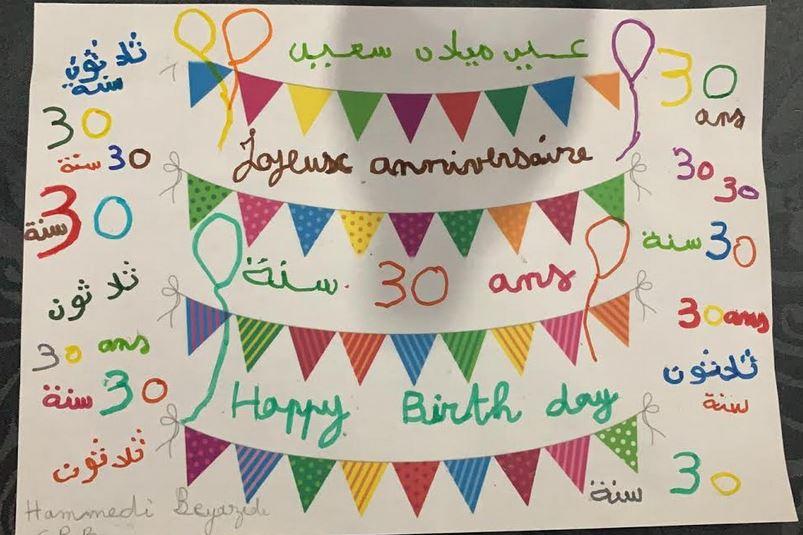 عيد ميلاد سعيد
Joyeuse anniversaire
سنة 30 ans
Happy Birth day
ثلاثون
سنة
30
30 سنة
30
سنة
ثلاثون
30 ans
30 سنة
ثلاثون
Hammedi Beyazide
30
ans
30
30
30 سنة
30 ans
ثلاثون
سنة
30 سنة